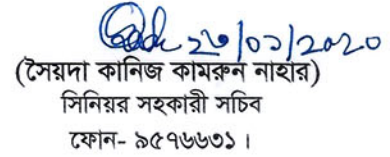 ২৩/০১/২০২০
(সৈয়দা কানিজ কামরুন নাহার)
সিনিয়র সহকারী সচিব
ফোন- ৯৫৭৬৬৩১ ।